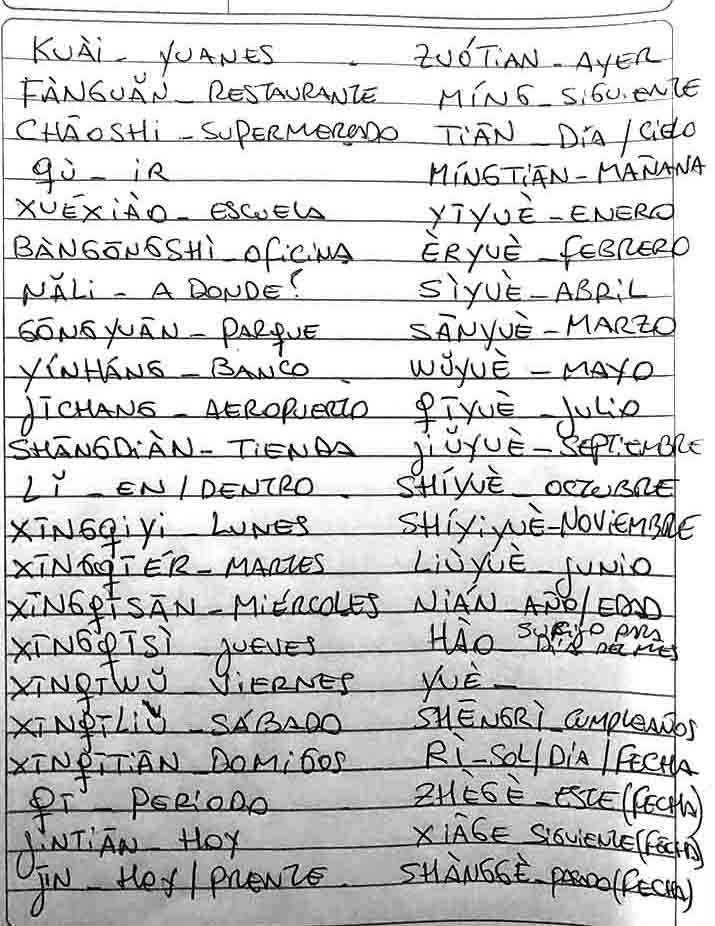 KUÀI - YUANES
FÀNGUǍN - RESTAURANTE
CHĀOSHI - SUPERMERCADO
QÙ - IR
XUÉXIÀO - ESCUELA
BÀNGŌNGSHÌ - OFICINA
NǍLi - A DONDE?
GŌNGYUÁN - PARQUE
YÍNHÁNG - BANCO
JĪCHANG - AEROPUERTO
SHĀNGDIÀN - TIENDA
LǏ - EN/DENTRO
XĪNGQiYi LUNES
XĪNGQĪÈR - MARTES
XĪNGQĪSĀN - MIÉRCOLES
XĪNGQĪSÌ JUEVES
XĪNQĪWǓ VIERNES
XĪNQĪLIÙ - SÁBADO
XĪNQĪTIĀN DOMIGOS
QĪ - PERIODO
JĪNTIĀN - HOY
JĪN - HOY/PRENTE
ZUÓTIAN - AYER
MÍNG - SIGUIENTE
TIĀN - DÍA/CIELO
MÍNGTIĀN - MAÑANA
YĪYUÈ - ENERO
ÈRYUÈ - FEBRERO
SÌYUÈ - ABRIL
SĀNYUÈ - MARZO
WǓYUÈ - MAYO
QĪYUÈ - JULIO
JIǓYUÈ - SEPTIEMBRE
SHÍYUÈ - OCTUBRE
SHÍYiYUÈ - NOVIEMBRE
LIÙYUÈ - JUNIO
NIÁN AÑO/EDAD
HÀO SUFIJO PARA
DÍA DEL MES
YUÈ -
SHĒNGRÌ CUMPLEAÑOS
RÌ - SOL/DÍA/FECHA
ZHÈGÈ - ESTE (FECHA)
XIÀGE SIGUIENTE (FECHA)
SHÀNGGÈ - PASADO (FECHA)